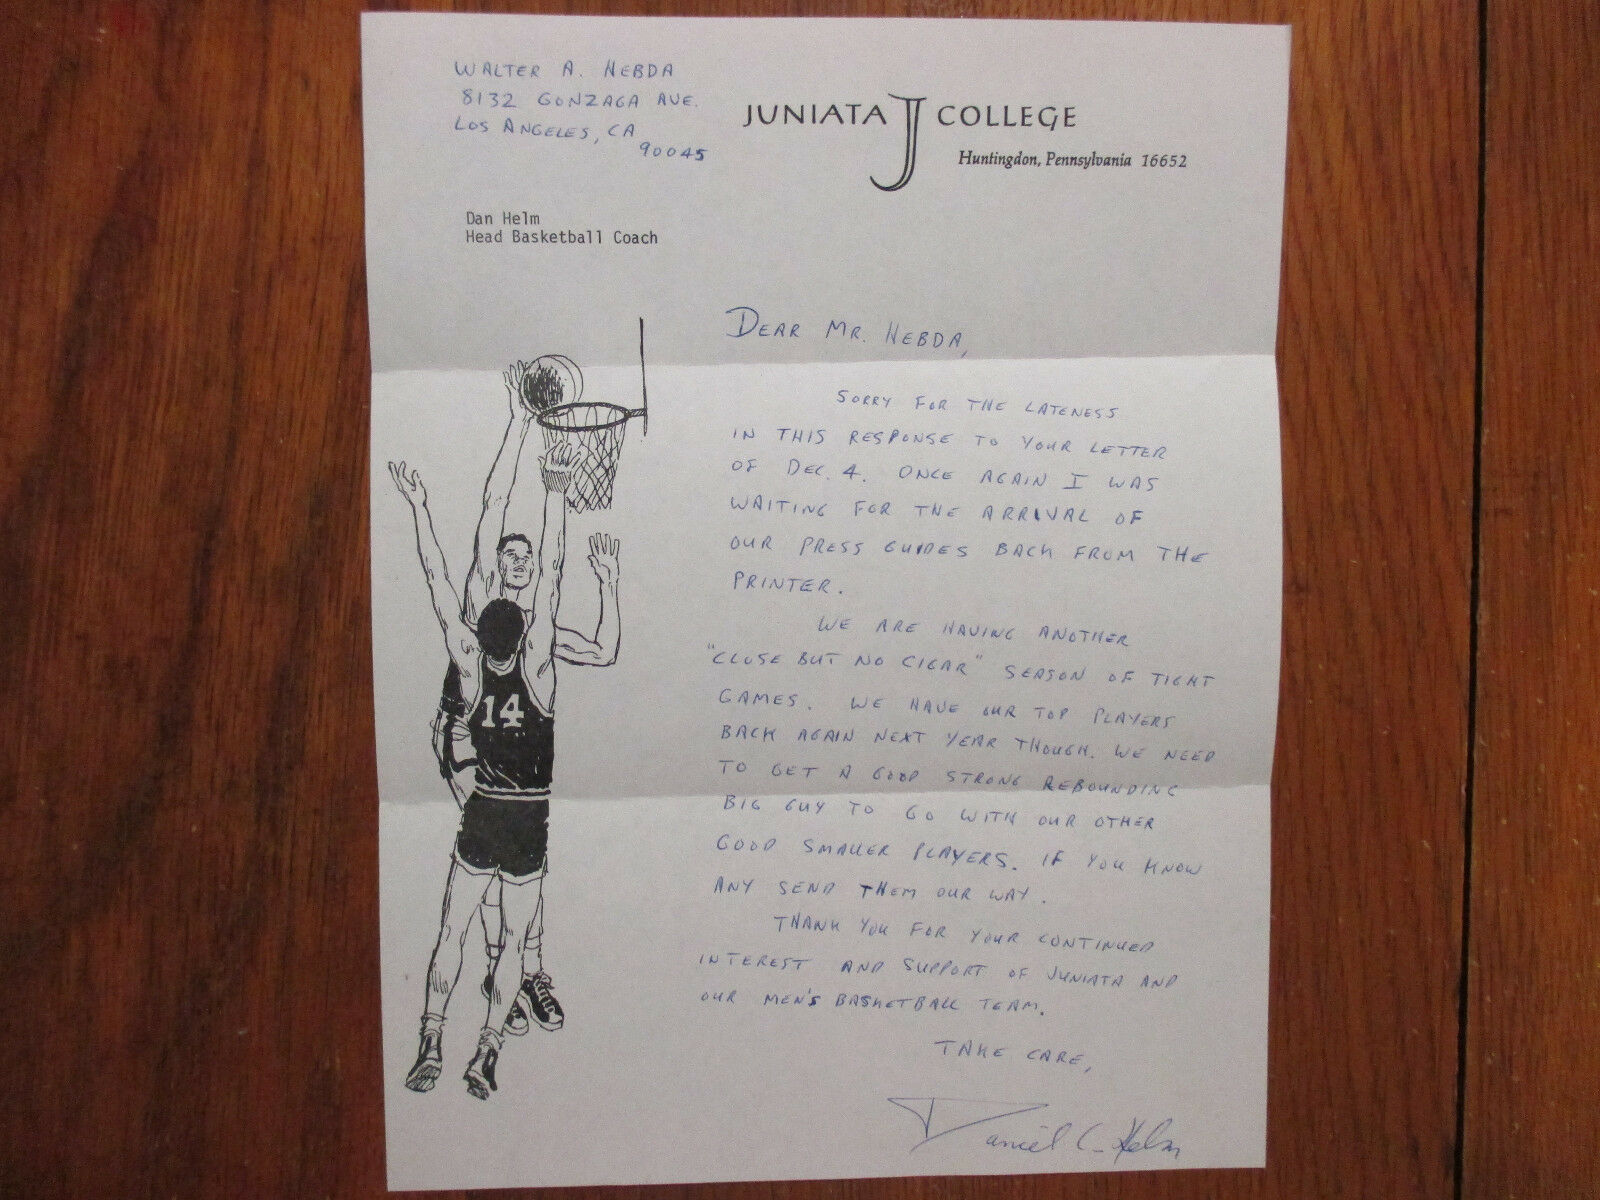 WALTER A. HEBDA
8132 GONZAGA AVE.
LOS ANGELES, CA
90045
JUNIATA J COLLEGE
Huntingdon, Pennsylvania 16652
Dan Helm
Head Basketball Coach
DEAR MR. HEBDA,
SORRY FOR THE LATENESS
IN THIS RESPONSE TO YOUR LETTER
OF DEC. 4. ONCE AGAIN I WAS
WAITING FOR THE ARRIVAL OF
OUR PRESS GUIDES BACK FROM THE
PRINTER.
WE ARE HAVING ANOTHER
"CLOSE BUT NO CIGAR" SEASON OF TIGHT
GAMES. WE HAVE OUR TOP PLAYERS
BACK AGAIN NEXT YEAR THOUGH. WE NEED
TO GET A GOOD STRONG REBOUNDING
BIG GUY TO GO WITH OUR OTHER
GOOD SMALLER PLAYERS. IF YOU KNOW
ANY SEND THEM OUR WAY.
THANK YOU FOR YOUR CONTINUED
INTEREST AND SUPPORT OF JUNIATA AND
OUR MEN'S BASKETBALL TEAM.
TAKE CARE,
Daniel C. Helm
14